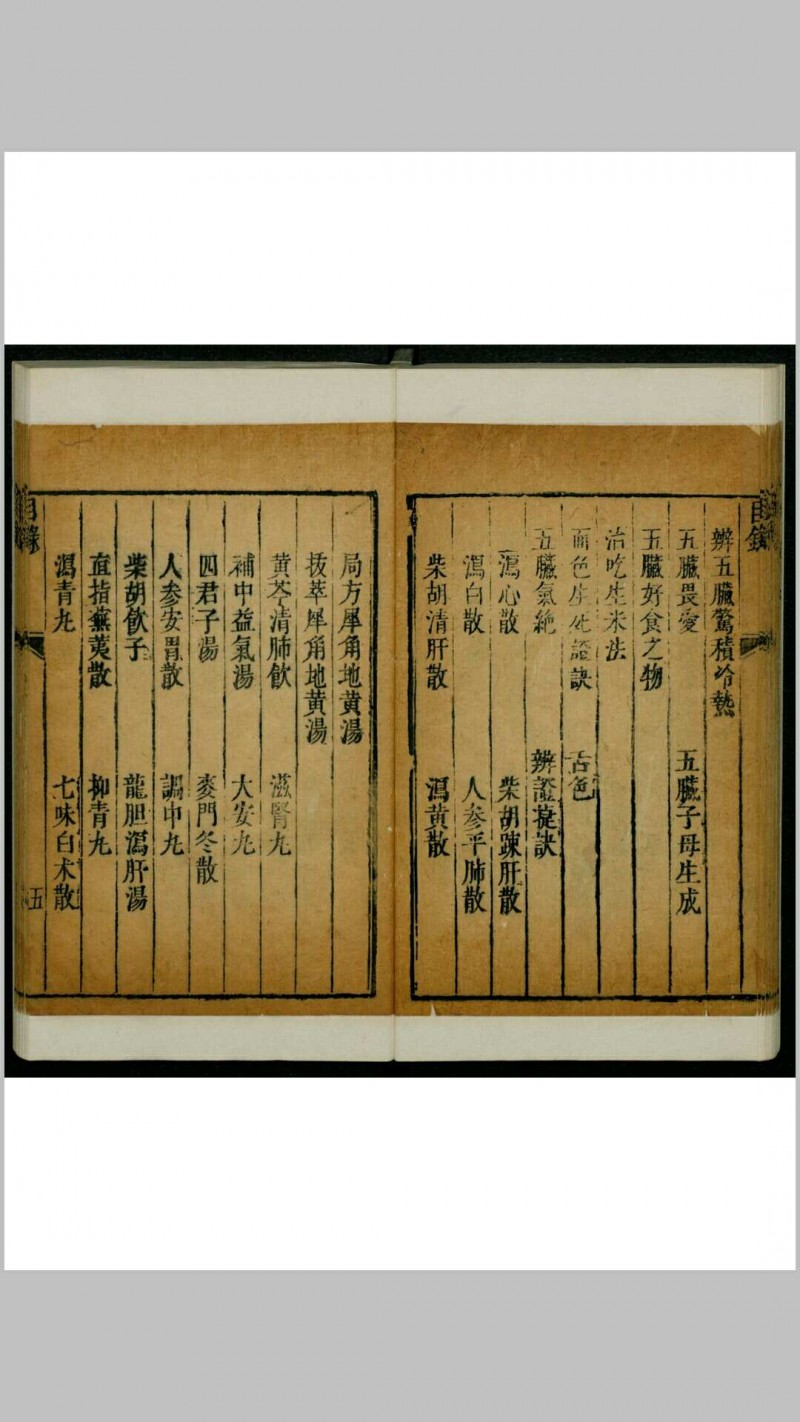 目錄
辨五臟驚積冷熱
五臟畏愛 五臟子母生成
五臟好食之物
治吃生米法
面色生死證訣 舌色
五臟氣絕 辨證㨗訣
瀉心散 柴胡踈肝散
瀉白散 人参平肺散
柴胡清肝散 瀉黄散
局方犀角地黄湯
拔萃犀角地黄湯
黄芩清肺飲 滋腎丸
補中益氣湯 大安丸
四君子湯 麥門冬散
人参安胃散 調中丸
柴胡飲子 龍胆瀉肝湯
直指蕪荑散 抑青丸
瀉青丸 七味白术散
目錄 五